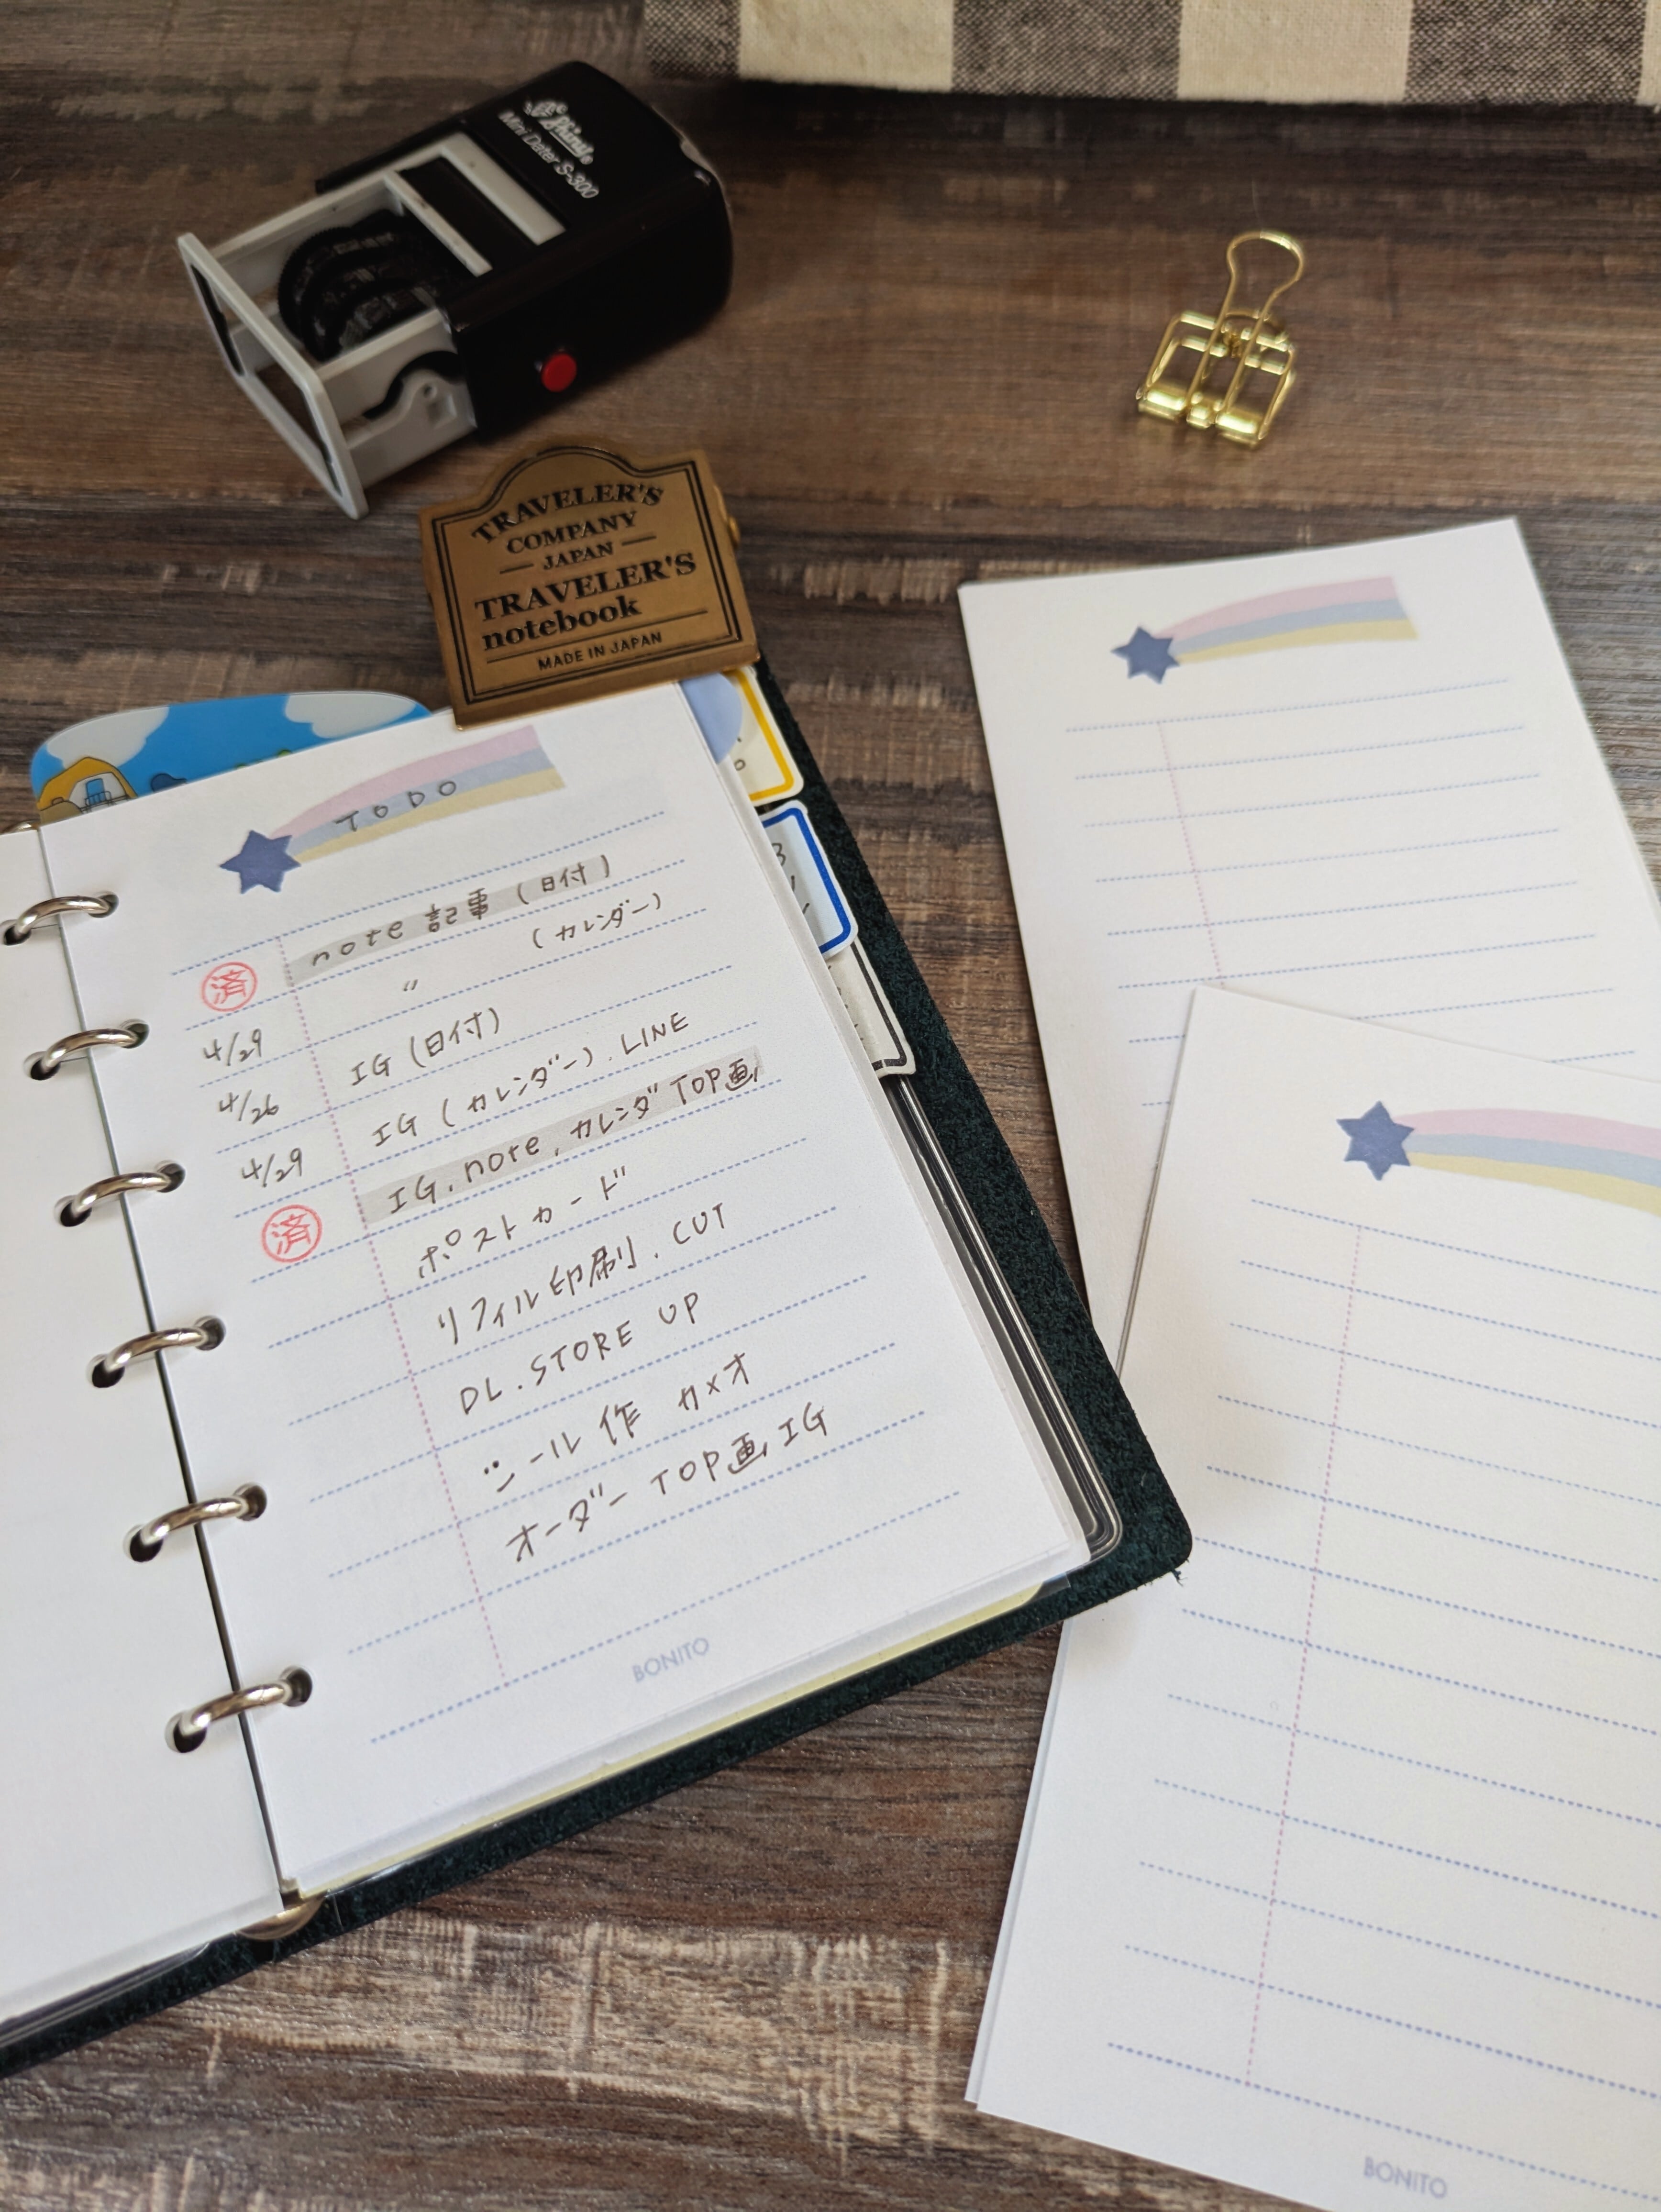 Shiny
Mini Dater S-300
TRAVELER'S
COMPANY
JAPAN
TRAVELER'S
notebook
MADE IN JAPAN
TODO
済 note 記事 (日付)
4/29 〃 (カレンダー)
4/26 IG (日付)
4/29 IG (カレンダー). LINE
済 IG. note. カレンダ TOP画
ポストカード
リフィル印刷. CUT
DL. STORE UP
シール作 カメオ
オーダー TOP画 IG
BONITO
BONITO